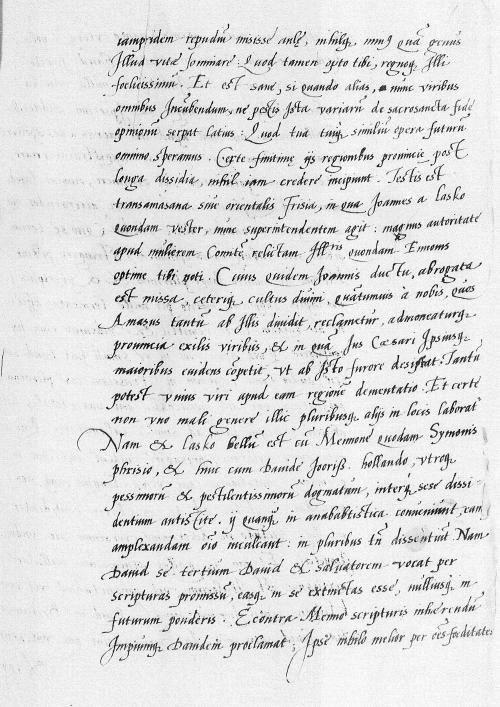 iampridem repudiũ misisse aulę, nihilq̃ minq̃ quã genus
Illud vitæ somniare: Quod tamen opto tibi, regnoq̃ Illi
foelicissimũ. Et est sane, si quando alias, nunc viribus
omnibus Incũbendum, ne pestis Ista variarũ de sacrosancta fide
opinionũ serpat latius: Quod tua tuiq̃ similiũ opera futurũ
omnino speramus. Certe finitimę ijs regionibus prouincię post
longa dissidia, nihil iam credere incipiunt. Testis est
transamasana siue orientalis Frisia, in qua Joannes a lasko
quondam vester, nunc superintendentem agit: magnus autoritate
apud mulierem Comitẽ relictam Illˢ quondam Ennonis
optime tibi noti. Cuius quidem Joannis ductu, abrogata
est missa, ceteriq̃ cultus diuini, quãtumuis à nobis, quos
Amasus tantũ ab Illis diuidit, reclametur, admoneaturq̃
prouincia exilis viribus, & in quã Jus Cæsari Ipsiusq̃
maioribus euidens cõpetit, vt ab Isto furore desistat. Tantũ
potest vnius viri apud eam regionẽ dementatio. Et certe
non vno mali genere illic pluribusq̃ alijs in locis laboratˢ
Nam & lasko bellũ est cũ Mennone quodam Symonis
phrisio, & huic cum Dauide Jooriß. hollando, vtroq̃
pessimorũ & pestilentissimorũ dogmatum, interq̃ sese dissi-
dentium antistite. ij quanq̃ in anababtistica conueniunt, eam
amplexandam oĩo inculcant: in pluribus tñ dissentiũt Nam
Dauid se tertium Dauid & saluatorem vocat per
scripturas promissũ, easq̃ in se extinctas esse, nulliusq̃ in
futurum ponderis. Ecõntra Menno scripturis inhęrendũ
Impiumq̃ Dauidem proclamat. Ipse nihilo melior per oẽs foeditates